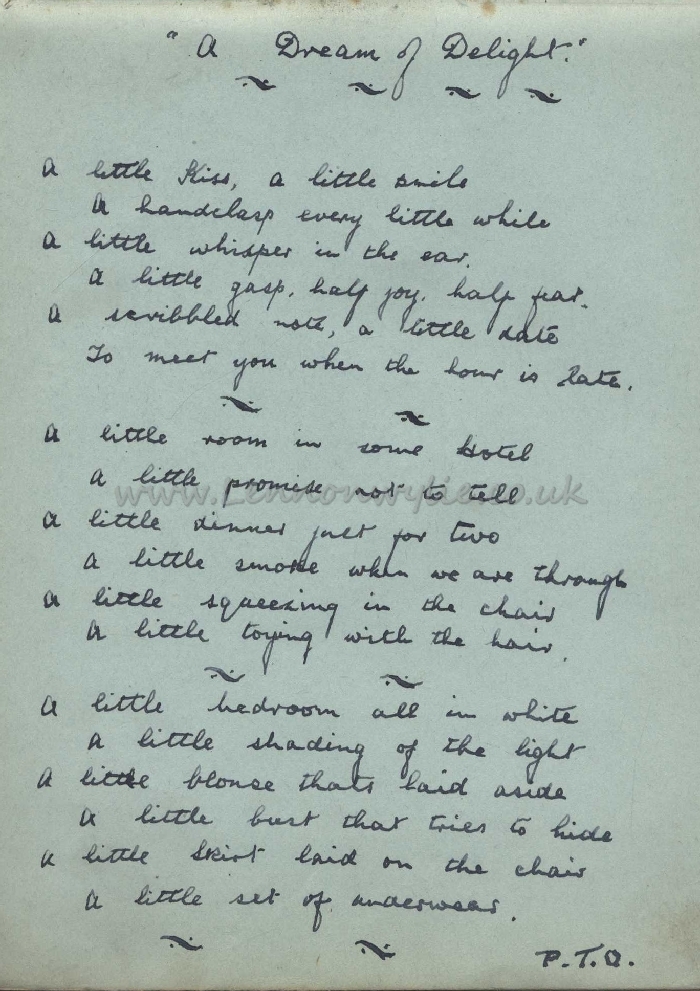 "A Dream of Delight."
A little Kiss, a little smile
A handclasp every little while
A little whisper in the ear.
A little gasp, half joy, half fear.
A scribbled note, a little date
To meet you when the hour is late.
A little room in some Hotel
A little promise not to tell
www.Lennonwylie.co.uk
A little dinner just for two
A little smoke when we are through
A little squeezing in the chair
A little toying with the hair.
A little bedroom all in white
A little shading of the light
A little blouse thats laid aside
A little bust that tries to hide
A little skirt laid on the chair
A little set of underwear.
P.T.O.